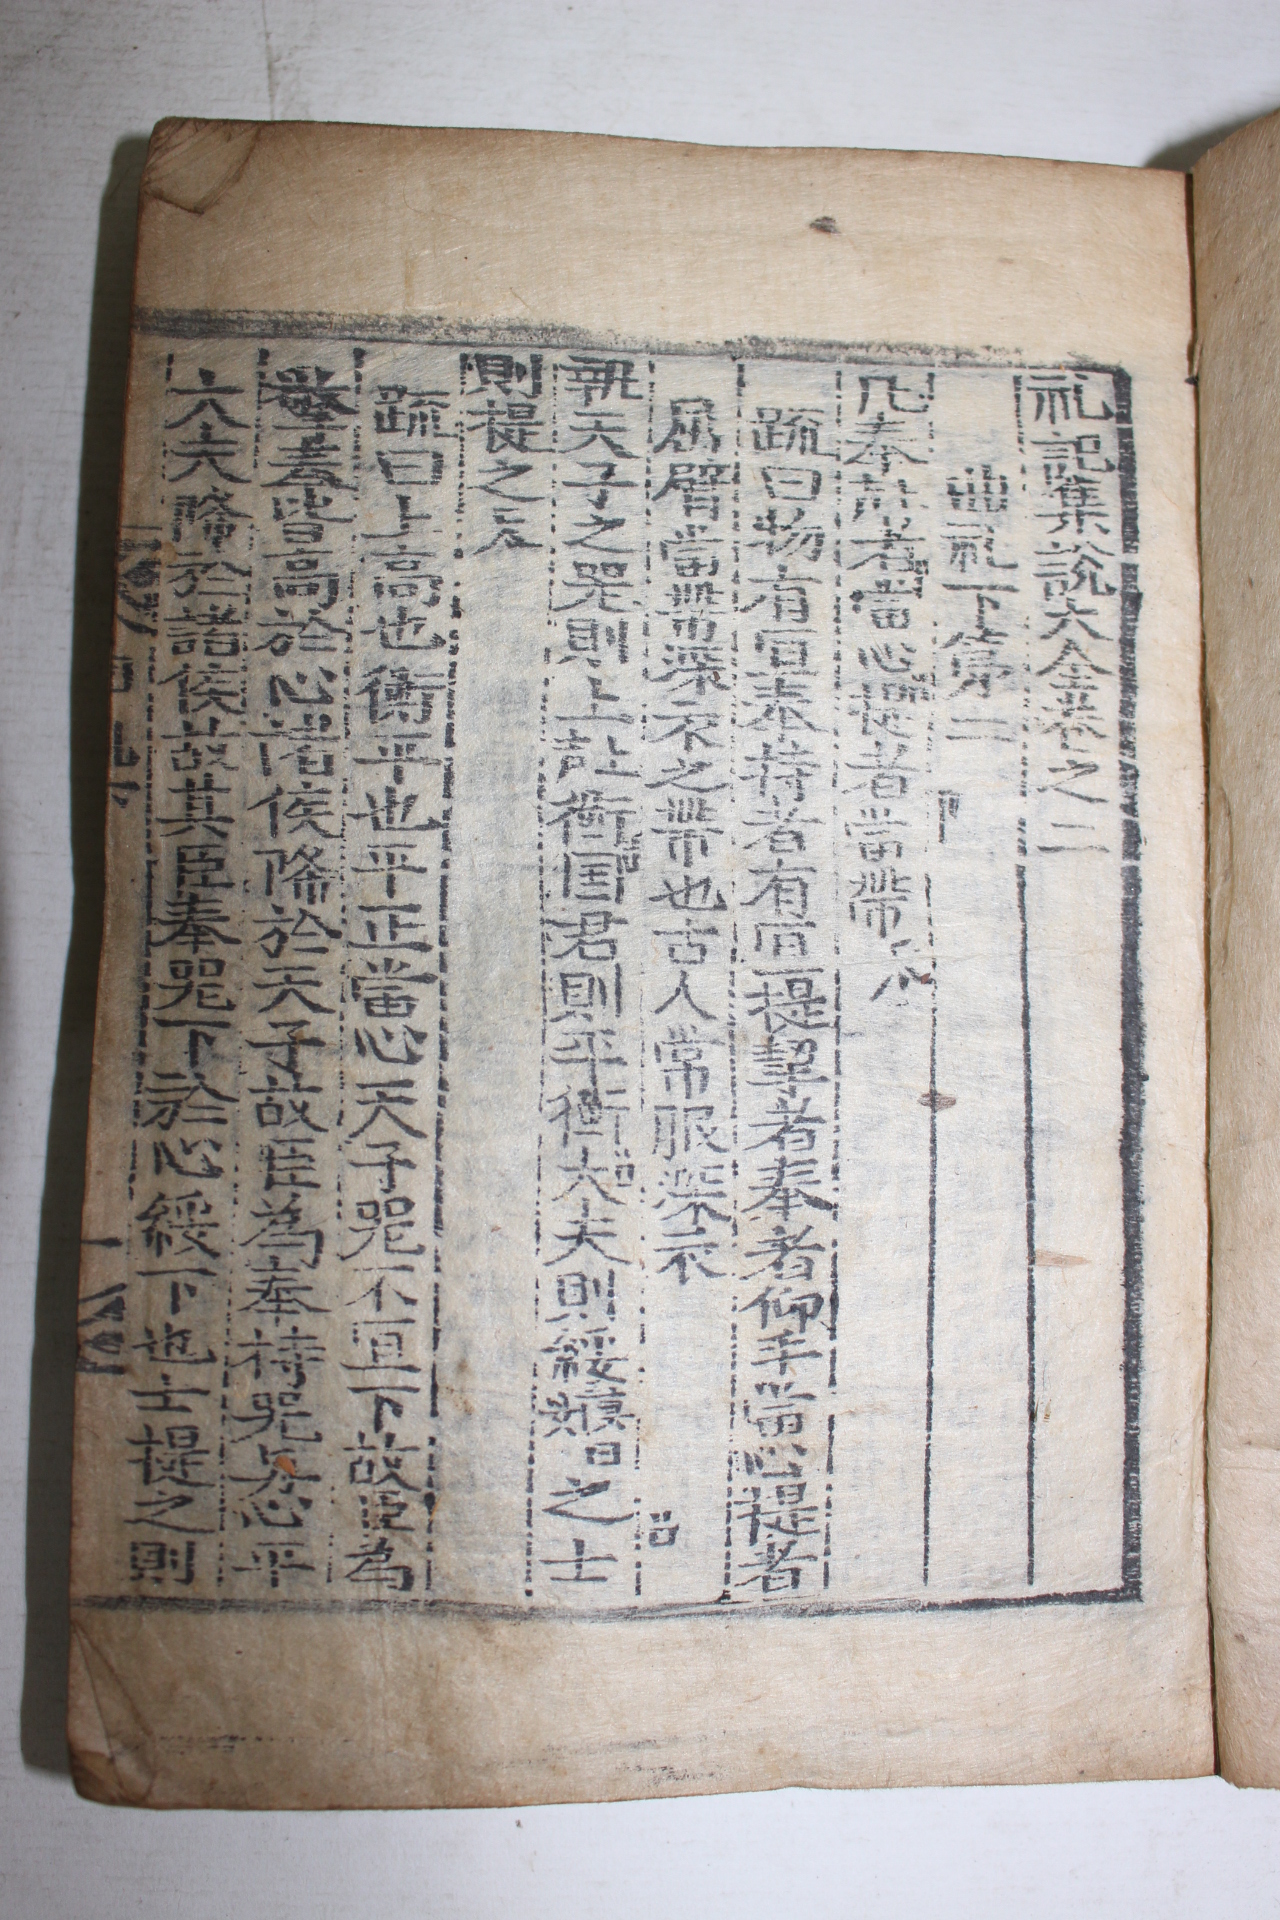 礼記集說大全卷之二
曲礼下第二
凡奉者當心提者當帶
疏曰物有宜奉持者有宜提挈者奉者仰手當心提者
屈臂當帶深衣之帶也古人常服深衣
執天子之器則上衡国君則平衡大夫則綏之士
則提之
疏曰上高也衡平也平正當心天子器不宜下故臣為
擎奉皆高於心諸侯降於天子故臣為奉持器與心平
大夫降於諸侯故其臣奉器下於心綏下也士提之則